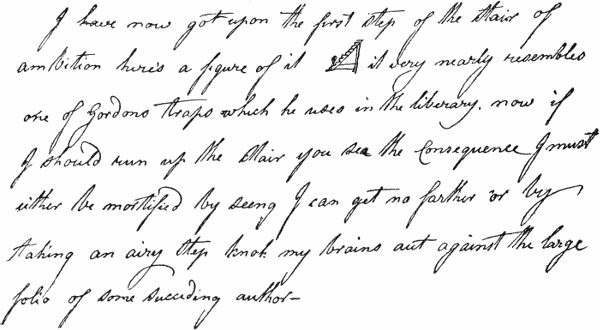 I have now got upon the first step of the stair of
ambition here's a figure of it it very nearly resembles
one of Gordons traps which he uses in the liberary. now if
I should run up the stair you see the Consequence I must
either be mortified by seeng I can get no farther or by
taking an airy step knok my brains aut against the large
folio of some succiding author—